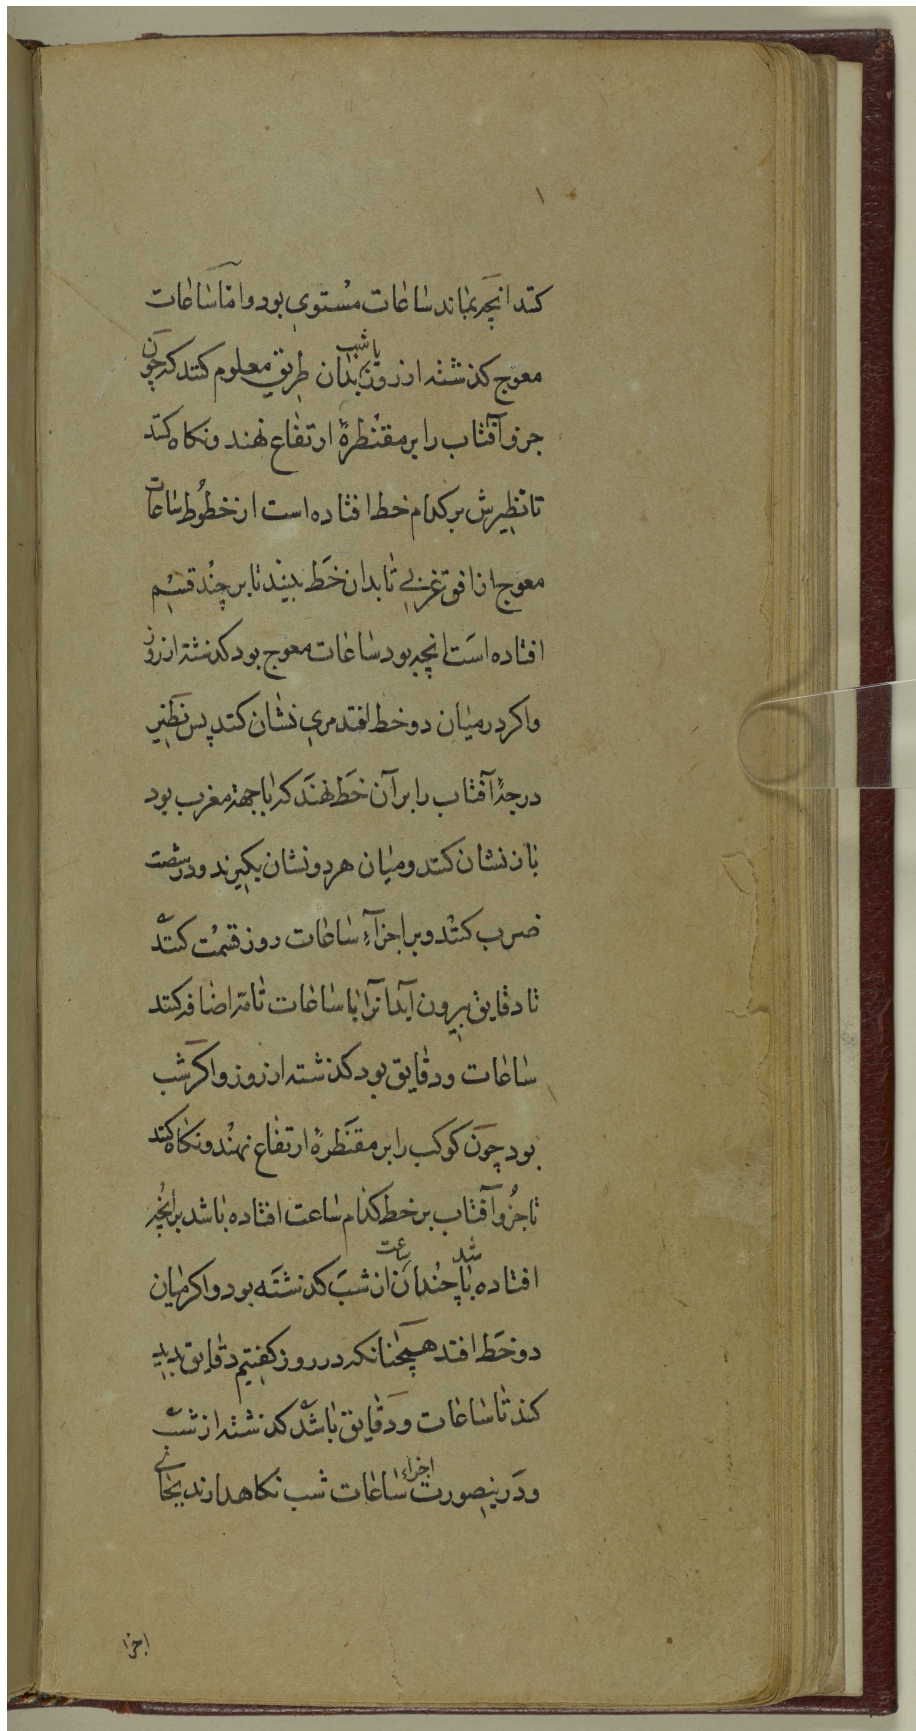 ۱
کنند انچه بماند ساعات مستوی بود و امّا ساعات
معوج کذشته از روز یا شب بدان طریق معلوم کنند که چون
جزو آفتاب را بر مقنطرهٔ ارتفاع نهند و نکاه کنند
تا نظیرش بر کدام خط افتاده است از خطوط ساعات
معوج از افق غربی تا بدان خط ببیند تا بر چند قسم
افتاده است انچه بود ساعات معوج بود کذشته از روز
و اکر در میان دو خط افتد مری نشان کنند پس نظیر
درجهٔ آفتاب را بر آن خط نهند که با جهة مغرب بود
باز نشان کنند و میان هر دو نشان بکیرند و در شصت
ضرب کنند و بر اجزآءِ ساعات روز قسمت کنند
تا دقایق بیرون آید آنرا با ساعات تامه اضافه کنند
ساعات و دقایق بود کذشته از روز و اکر شب
بود چون کوکب را بر مقنطرهٔ ارتفاع نهند و نکاه کنند
تا جزو آفتاب بر خط کدام ساعت افتاده باشد بر انچه
افتاده باشد چندان ساعت از شب کذشته بود و اکر میان
دو خط افتد همچنانکه در روز کفتیم دقایق پدید
کند تا ساعات و دقایق باشد کذشته از شب
و درینصورت اجزاء ساعات شب نکاهدارند بجای
اجزا